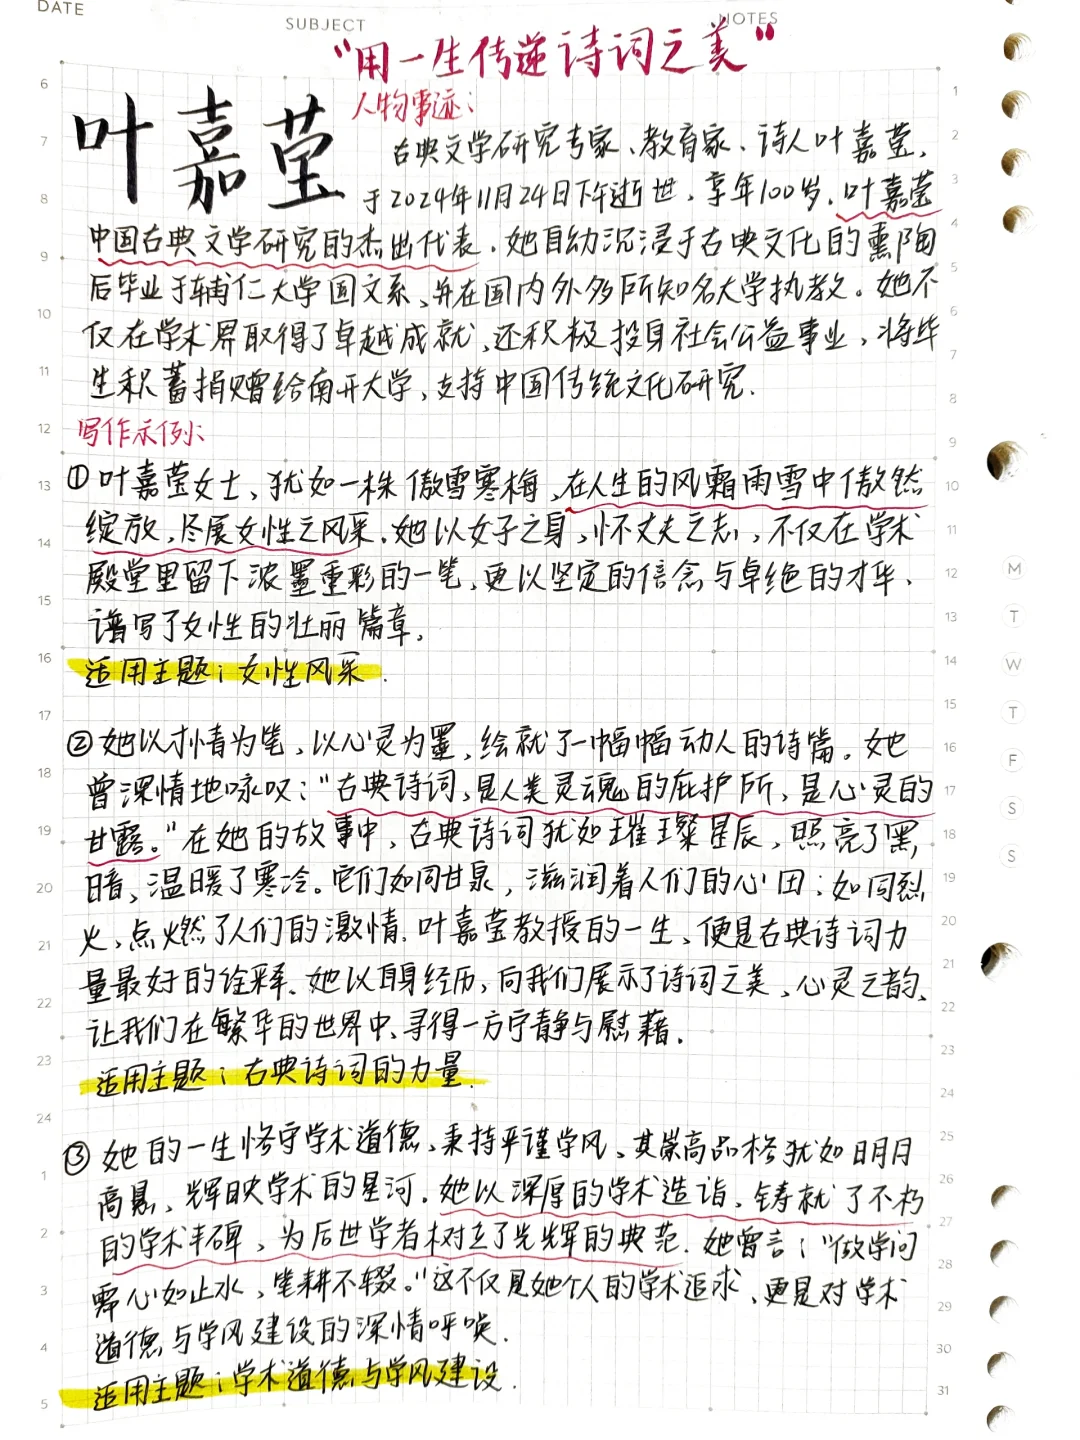 DATE
SUBJECT
NOTES
“用一生传递诗词之美”
叶嘉莹
人物事迹：
古典文学研究专家、教育家、诗人叶嘉莹，
于2024年11月24日下午逝世，享年100岁。叶嘉莹
中国古典文学研究的杰出代表。她自幼沉浸于古典文化的熏陶
后毕业于辅仁大学国文系、并在国内外多所知名大学执教。她不
仅在学术界取得了卓越成就、还积极投身社会公益事业，将毕
生积蓄捐赠给南开大学，支持中国传统文化研究.
写作示例：
①叶嘉莹女士、犹如一株傲雪寒梅、在人生的风霜雨雪中傲然
绽放，尽展女性之风采.她以女子之身，怀丈夫之志，不仅在学术
殿堂里留下浓墨重彩的一笔，更以坚定的信念与卓绝的才华、
谱写了女性的壮丽篇章。
适用主题：女性风采.
②她以才情为笔，以心灵为墨，绘就了一幅幅动人的诗篇。她
曾深情地咏叹：“古典诗词，是人类灵魂的庇护所，是心灵的
甘露。”在她的故事中，古典诗词犹如璀璨星辰，照亮了黑
暗，温暖了寒冷。它们如同甘泉，滋润着人们的心田；如同烈
火，点燃了人们的激情.叶嘉莹教授的一生、便是古典诗词力
量最好的诠释、她以自身经历，向我们展示了诗词之美、心灵之韵、
让我们在繁华的世界中、寻得一方宁静与慰藉.
适用主题：古典诗词的力量.
③她的一生恪守学术道德、秉持严谨学风、其崇高品格犹如明月
高悬，辉映学术的星河.她以深厚的学术造诣，铸就了不朽
的学术丰碑，为后世学者树立了光辉的典范.她曾言：“做学问
需心如止水，笔耕不辍。”这不仅是她个人的学术追求、更是对学术
道德与学风建设的深情呼唤.
适用主题：学术道德与学风建设.
6
7
8
9
10
11
12
13
14
15
16
17
18
19
20
21
22
23
24
1
2
3
4
5
1
2
3
4
5
6
7
8
9
10
11
12
13
14
15
16
17
18
19
20
21
22
23
24
25
26
27
28
29
30
31
M
T
W
T
F
S
S